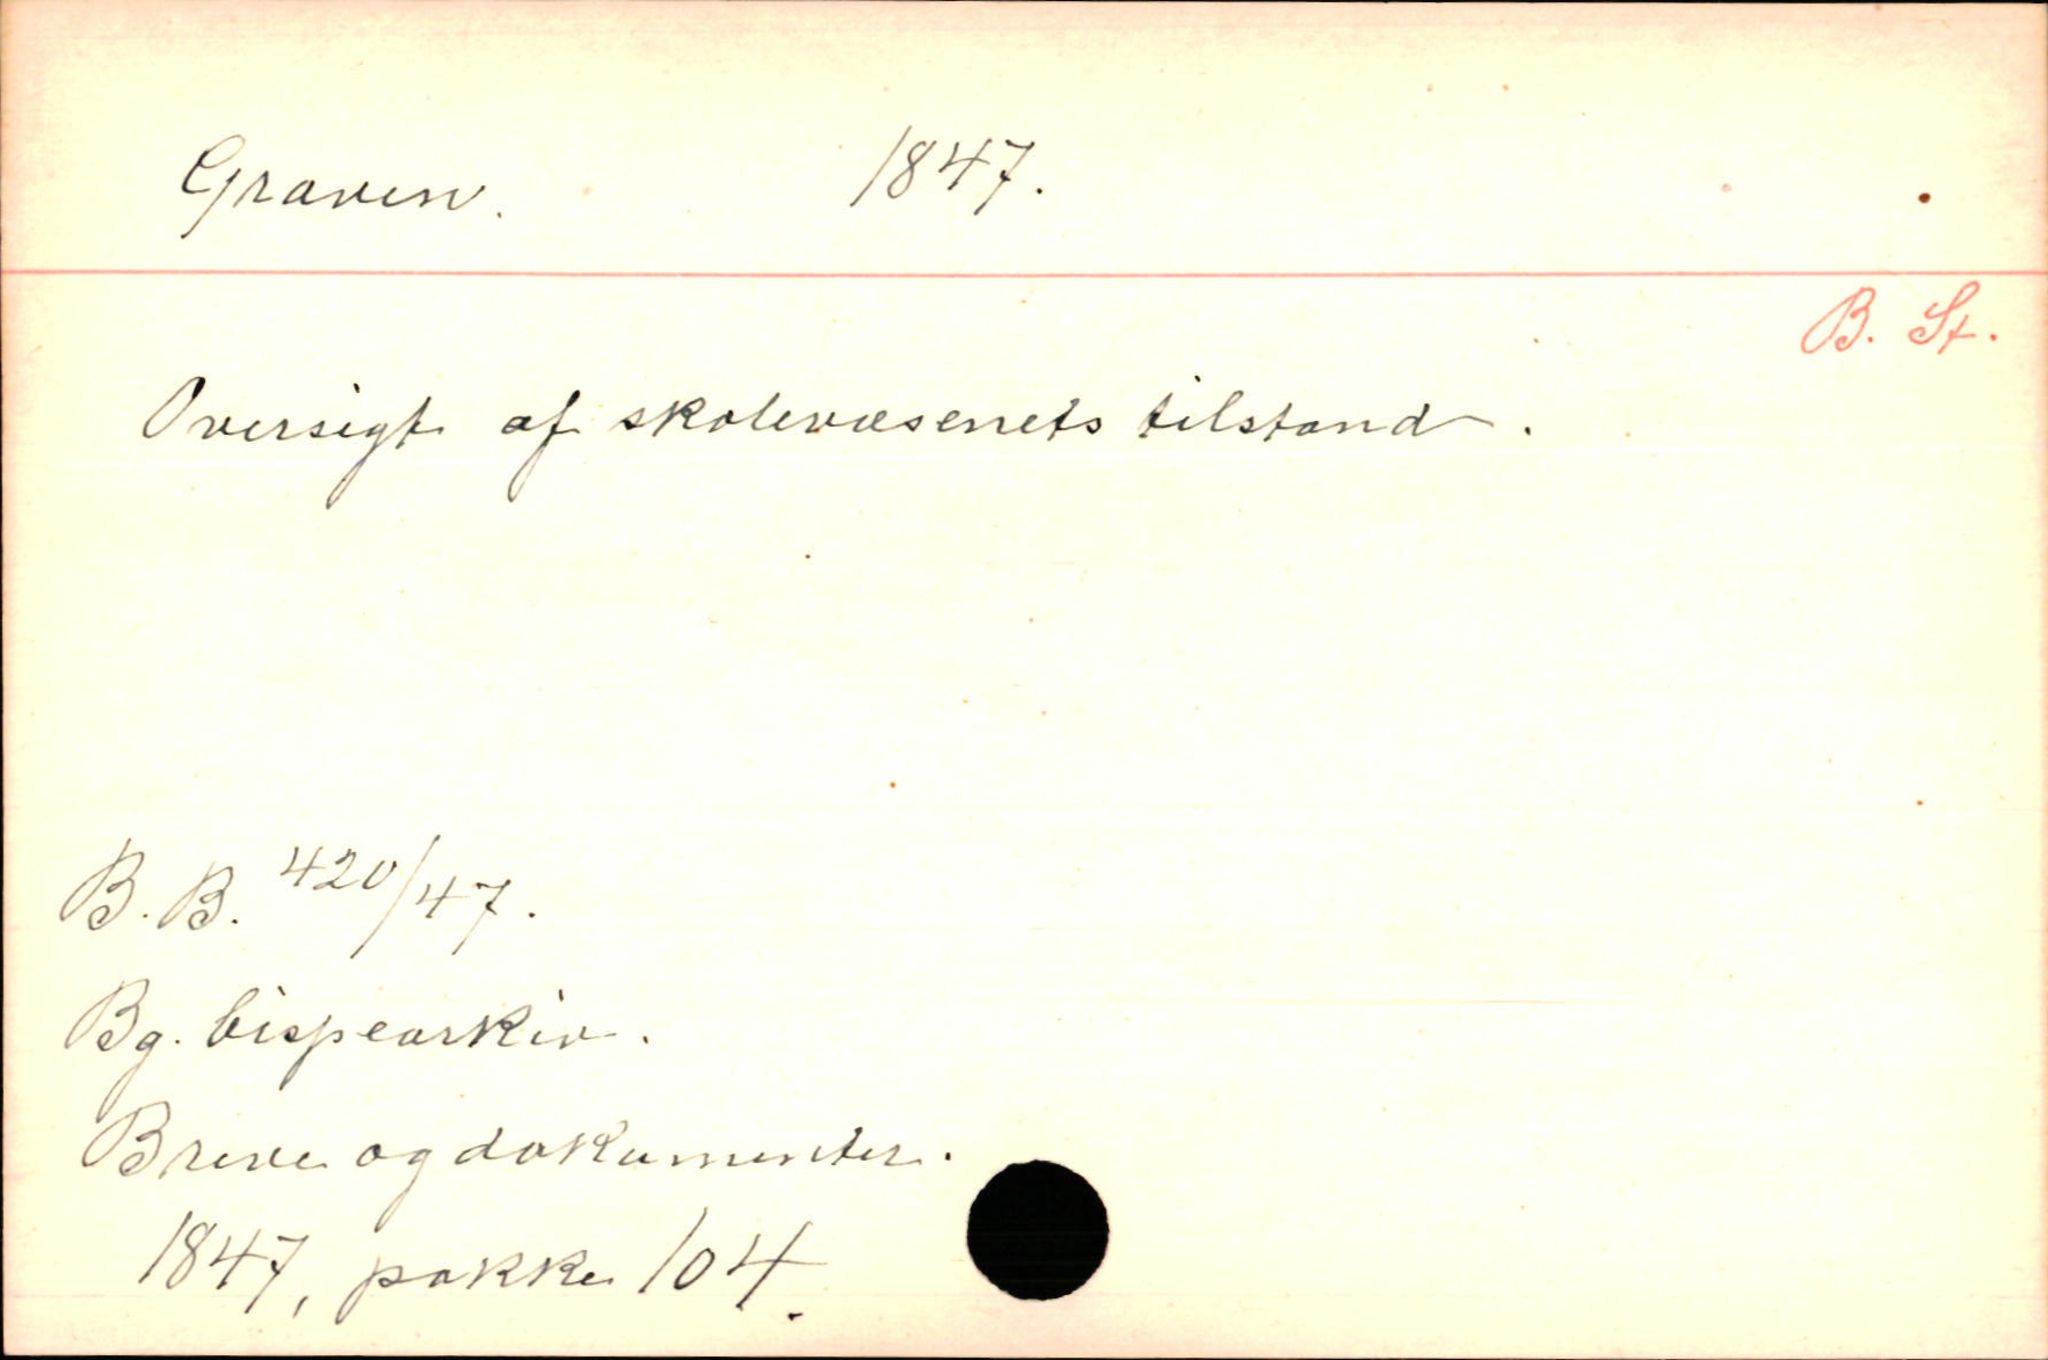 Graven. 1847.
B. St.
Oversigt af skolevæsenets tilstand.
B. B. 420/47.
Bg. bispearkiv.
Breve og dokumenter.
1847, pakke 104.